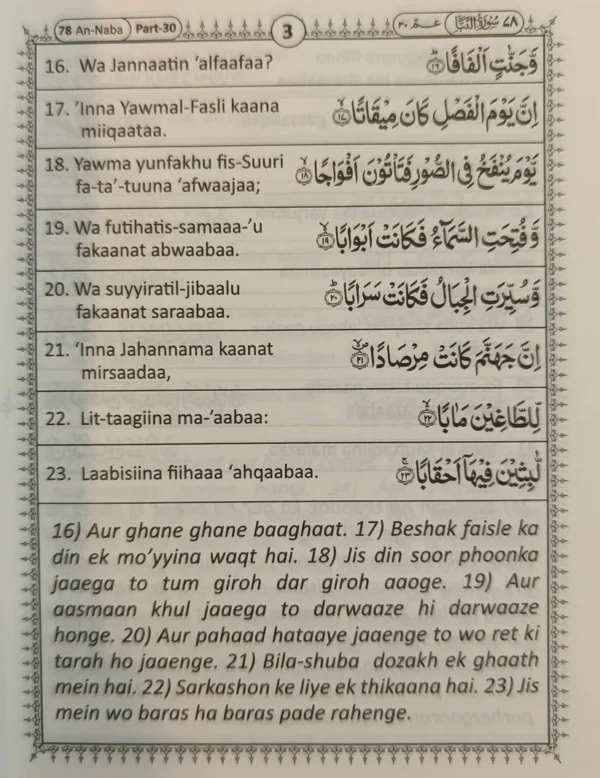 78 An-Naba Part-30 3 عـمّ ٣٠ سُوْرَةُ النَّبَاِ ٧٨
16. Wa Jannaatin ‘alfaafaa? وَّجَنّٰتٍ اَلْفَافًا ؕ۝۱۶
17. ’Inna Yawmal-Fasli kaana اِنَّ يَوْمَ الْفَصْلِ كَانَ مِيْقَاتًا ۙ۝۱۷
miiqaataa.
18. Yawma yunfakhu fis-Suuri يَّوْمَ يُنْفَخُ فِى الصُّوْرِ فَتَاْتُوْنَ اَفْوَاجًا ۙ۝۱۸
fa-ta’-tuuna ‘afwaajaa;
19. Wa futihatis-samaaa-’u وَّفُتِحَتِ السَّمَآءُ فَكَانَتْ اَبْوَابًا ۙ۝۱۹
fakaanat abwaabaa.
20. Wa suyyiratil-jibaalu وَّسُيِّرَتِ الْجِبَالُ فَكَانَتْ سَرَابًا ؕ۝۲۰
fakaanat saraabaa.
21. ‘Inna Jahannama kaanat اِنَّ جَهَنَّمَ كَانَتْ مِرْصَادًا ۙ۝۲۱
mirsaadaa,
22. Lit-taagiina ma-’aabaa: لِّلطَّاغِيْنَ مَاٰبًا ۙ۝۲۲
23. Laabisiina fiihaaa ‘ahqaabaa. لّٰبِثِيْنَ فِيْهَاۤ اَحْقَابًا ۚ۝۲۳
16) Aur ghane ghane baaghaat. 17) Beshak faisle ka
din ek mo’yyina waqt hai. 18) Jis din soor phoonka
jaaega to tum giroh dar giroh aaoge. 19) Aur
aasmaan khul jaaega to darwaaze hi darwaaze
honge. 20) Aur pahaad hataaye jaaenge to wo ret ki
tarah ho jaaenge. 21) Bila-shuba dozakh ek ghaath
mein hai. 22) Sarkashon ke liye ek thikaana hai. 23) Jis
mein wo baras ha baras pade rahenge.